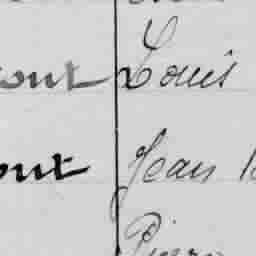 ont Louis
ont Jean
Pierre